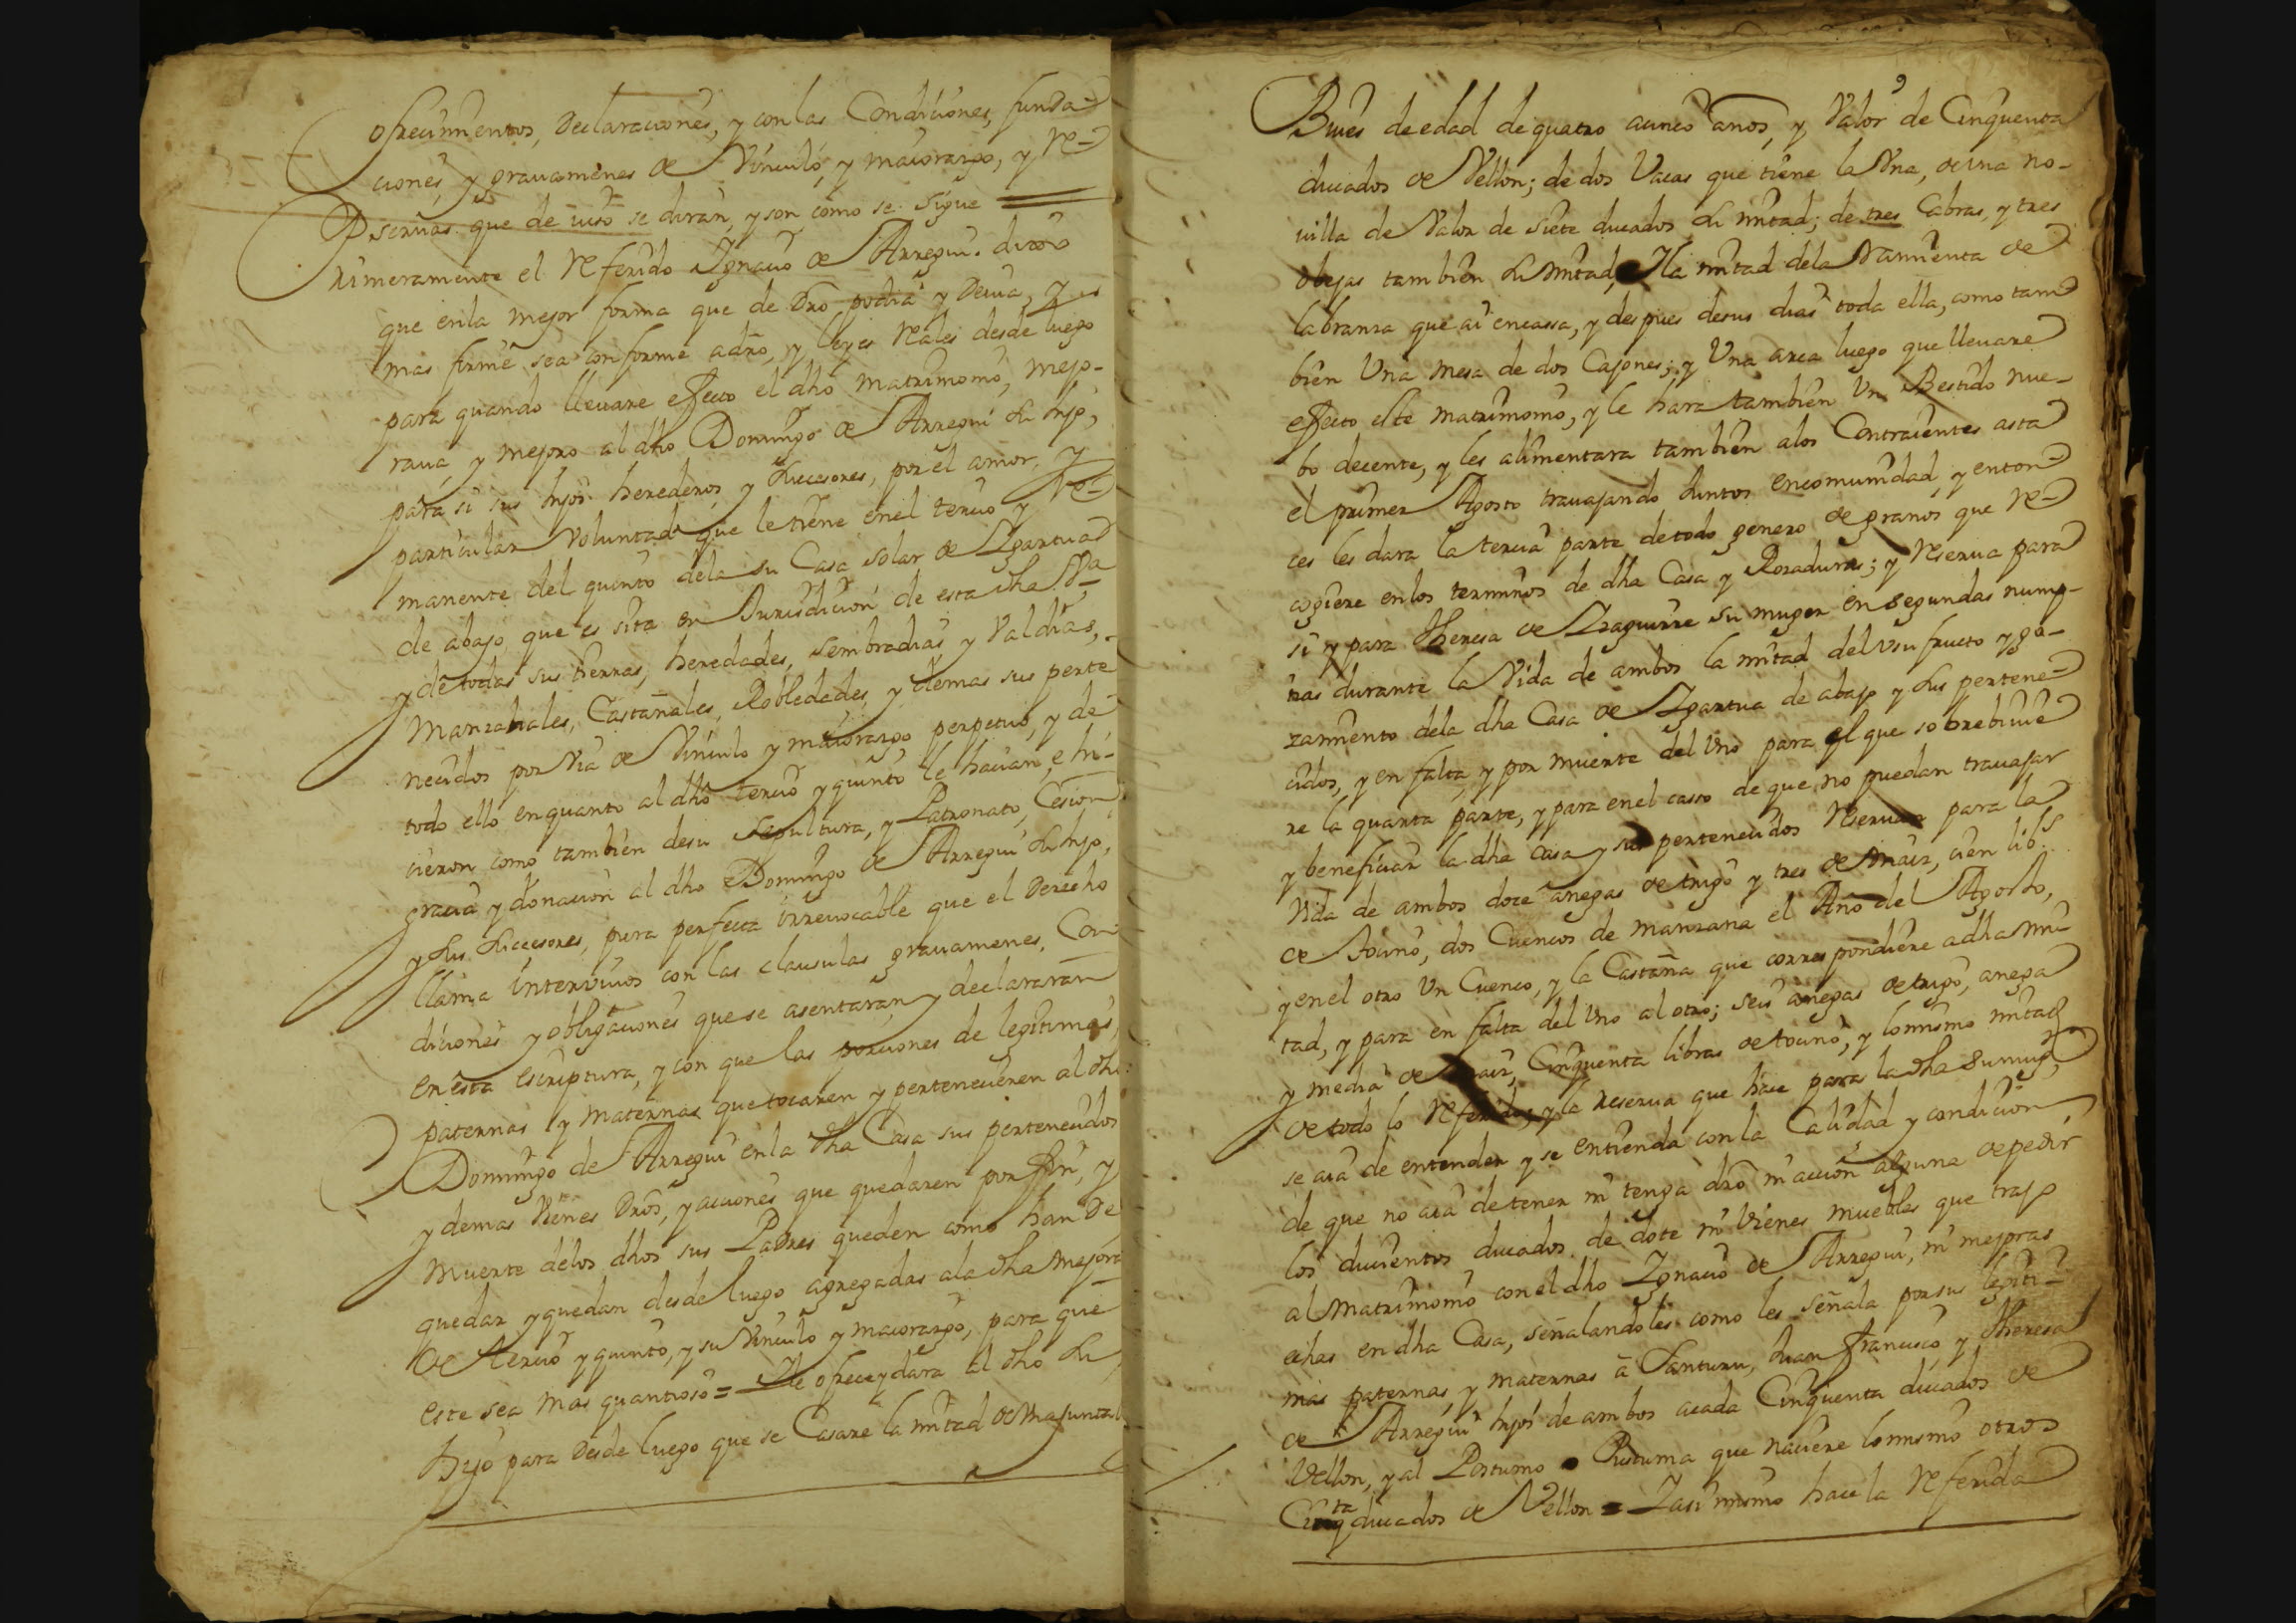 ofrecimientos, Declaraciones, y con las Condiciones, funda-
ciones, y grauamenes de Vinculo, y maiorazgo, y re-
seruas que de iuso se diran, y son como se sigue
Primeramente el referido Ignacio de Arregui dixo
que en la mejor forma que de dro podia y Deuia, y
mas firme sea conforme a dro, y leyes reales desde luego
para quando lleuare effecto el dho matrimonio, mejo-
raua, y mejoro al dho Domingo de Arregui su hijo,
para si sus hijos herederos, y subcesores, por el amor, y
particular Voluntad que le tiene en el tercio y re-
manente del quinto de la su Casa solar de Igartua
de abajo, que es sita en Jurisdicion de esta dha Va
y de todas sus tierras, heredades, sembradias y Valdias,
Manzanales, Castañales, Robledades, y demas sus perte
necidos por Via de Vinculo y maiorazgo perpetuo, y de
todo ello en quanto al dho tercio y quinto le hacian, e hi-
cieron como tambien de su sepultura, y Patronato, Cesion
gracia y donacion al dho Domingo de Arregui su hijo,
y sus subcesores, pura perfecta irreuocable que el Derecho
llama interviuos con las clausulas grauamenes, Con
diciones y obligaciones que se asentaran y declararan
en esta escriptura, y con que las porciones de legitimas,
paternas y maternas que tocaren y pertenecieren al dho
Domingo de Arregui en la dha Casa sus pertenecidos
y demas Vienes Dros, y acciones que quedaren por fin, y
muerte de los dhos sus Padres queden como han de
quedar y quedan desde luego agregadas a la dha mejora
de tercio y quinto, y su Vinculo y maiorazgo, para que
este sea mas quantioso = Yle ofrece y dara el dho su
hijo para Desde luego que se Casare la mitad de una junta de
Bueis de edad de quatro a cinco anos, y Valor de Cinquenta
ducados de Vellon; de dos Vacas que tiene la Vna, de una no-
uilla de Valor de siete ducados su mitad; de tres Cabras, y tres
obejas tambien su mitad, Y la mitad de la Ramienta de
labranza que ai en cassa, y despues de sus dias toda ella, como tam
bien Una mesa de dos Cajones; y Una arca luego que lleuare
effecto este matrimonio, y le hara tambien Un Bestido nue-
bo decente, y les alimentara tambien a los Contraientes asta
el primer Agosto trauajando juntos en comunidad, y enton-
ces les dara la tercia parte de todo genero de granos que re-
cogiere en los terminos de dha Casa y Rozaduras; y reserua para
si y para Theresa de Izaguirre su muger en segundas nump-
tias durante la Vida de ambos la mitad del Vsufructo y go-
zamiento de la dha Casa de Igartua de abajo y sus pertene-
cidos, y en falta, y por muerte del Uno para el que sobrebiuie
re la quarta parte, y para en el casso de que no puedan trauajar
y beneficiar la dha Casa y sus pertenecidos reseruar para la
Vida de ambos doce anegas de trigo y tres de maiz, cien libs
de tocino, dos Cuencos de manzana el Año del Agosto,
y en el otro Un Cuenco, y la Castaña que correspondiere a dha mi-
tad, y para en falta del Uno al otro; seis anegas de trigo, anega
y media de maiz, Cinquenta libras de tocino, y lo mismo mitad
de todo lo referido, y la reserua que hace para la dha su muger
se aia de entender y se entienda con la Calidad y condicion,
de que no aia de tener ni tenga dro ni accion alguna de pedir
los ducientos ducados de dote ni Vienes muebles que trajo
al matrimonio con el dho Ignacio de Arregui, ni mejoras
echas en dha Casa, señalandoles como les señala por sus legiti-
mas paternas, y maternas a Santuru, Juan Francisco y Theresa
de Arregui hijos de ambos a cada Cinquenta ducados de
Vellon, y al Postumo o Pustuma que naciere lo mismo otros
Cinqta ducados de Vellon = Y asi mismo hace la referida